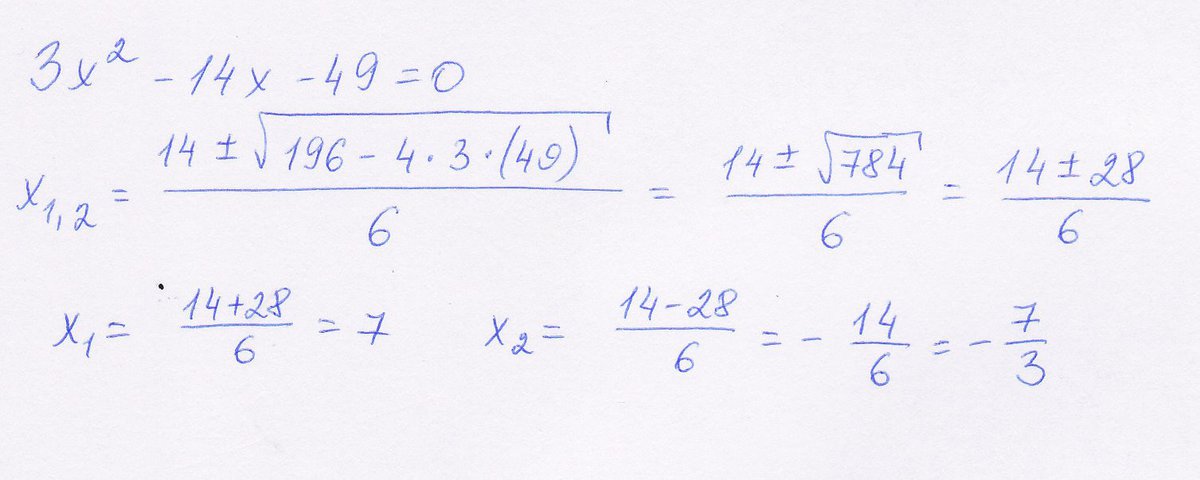 3x² - 14x - 49 = 0
x₁,₂ = (14 ± √(196 - 4 · 3 · (49)))/6 = (14 ± √784)/6 = (14 ± 28)/6
x₁ = (14+28)/6 = 7    x₂ = (14-28)/6 = - 14/6 = - 7/3